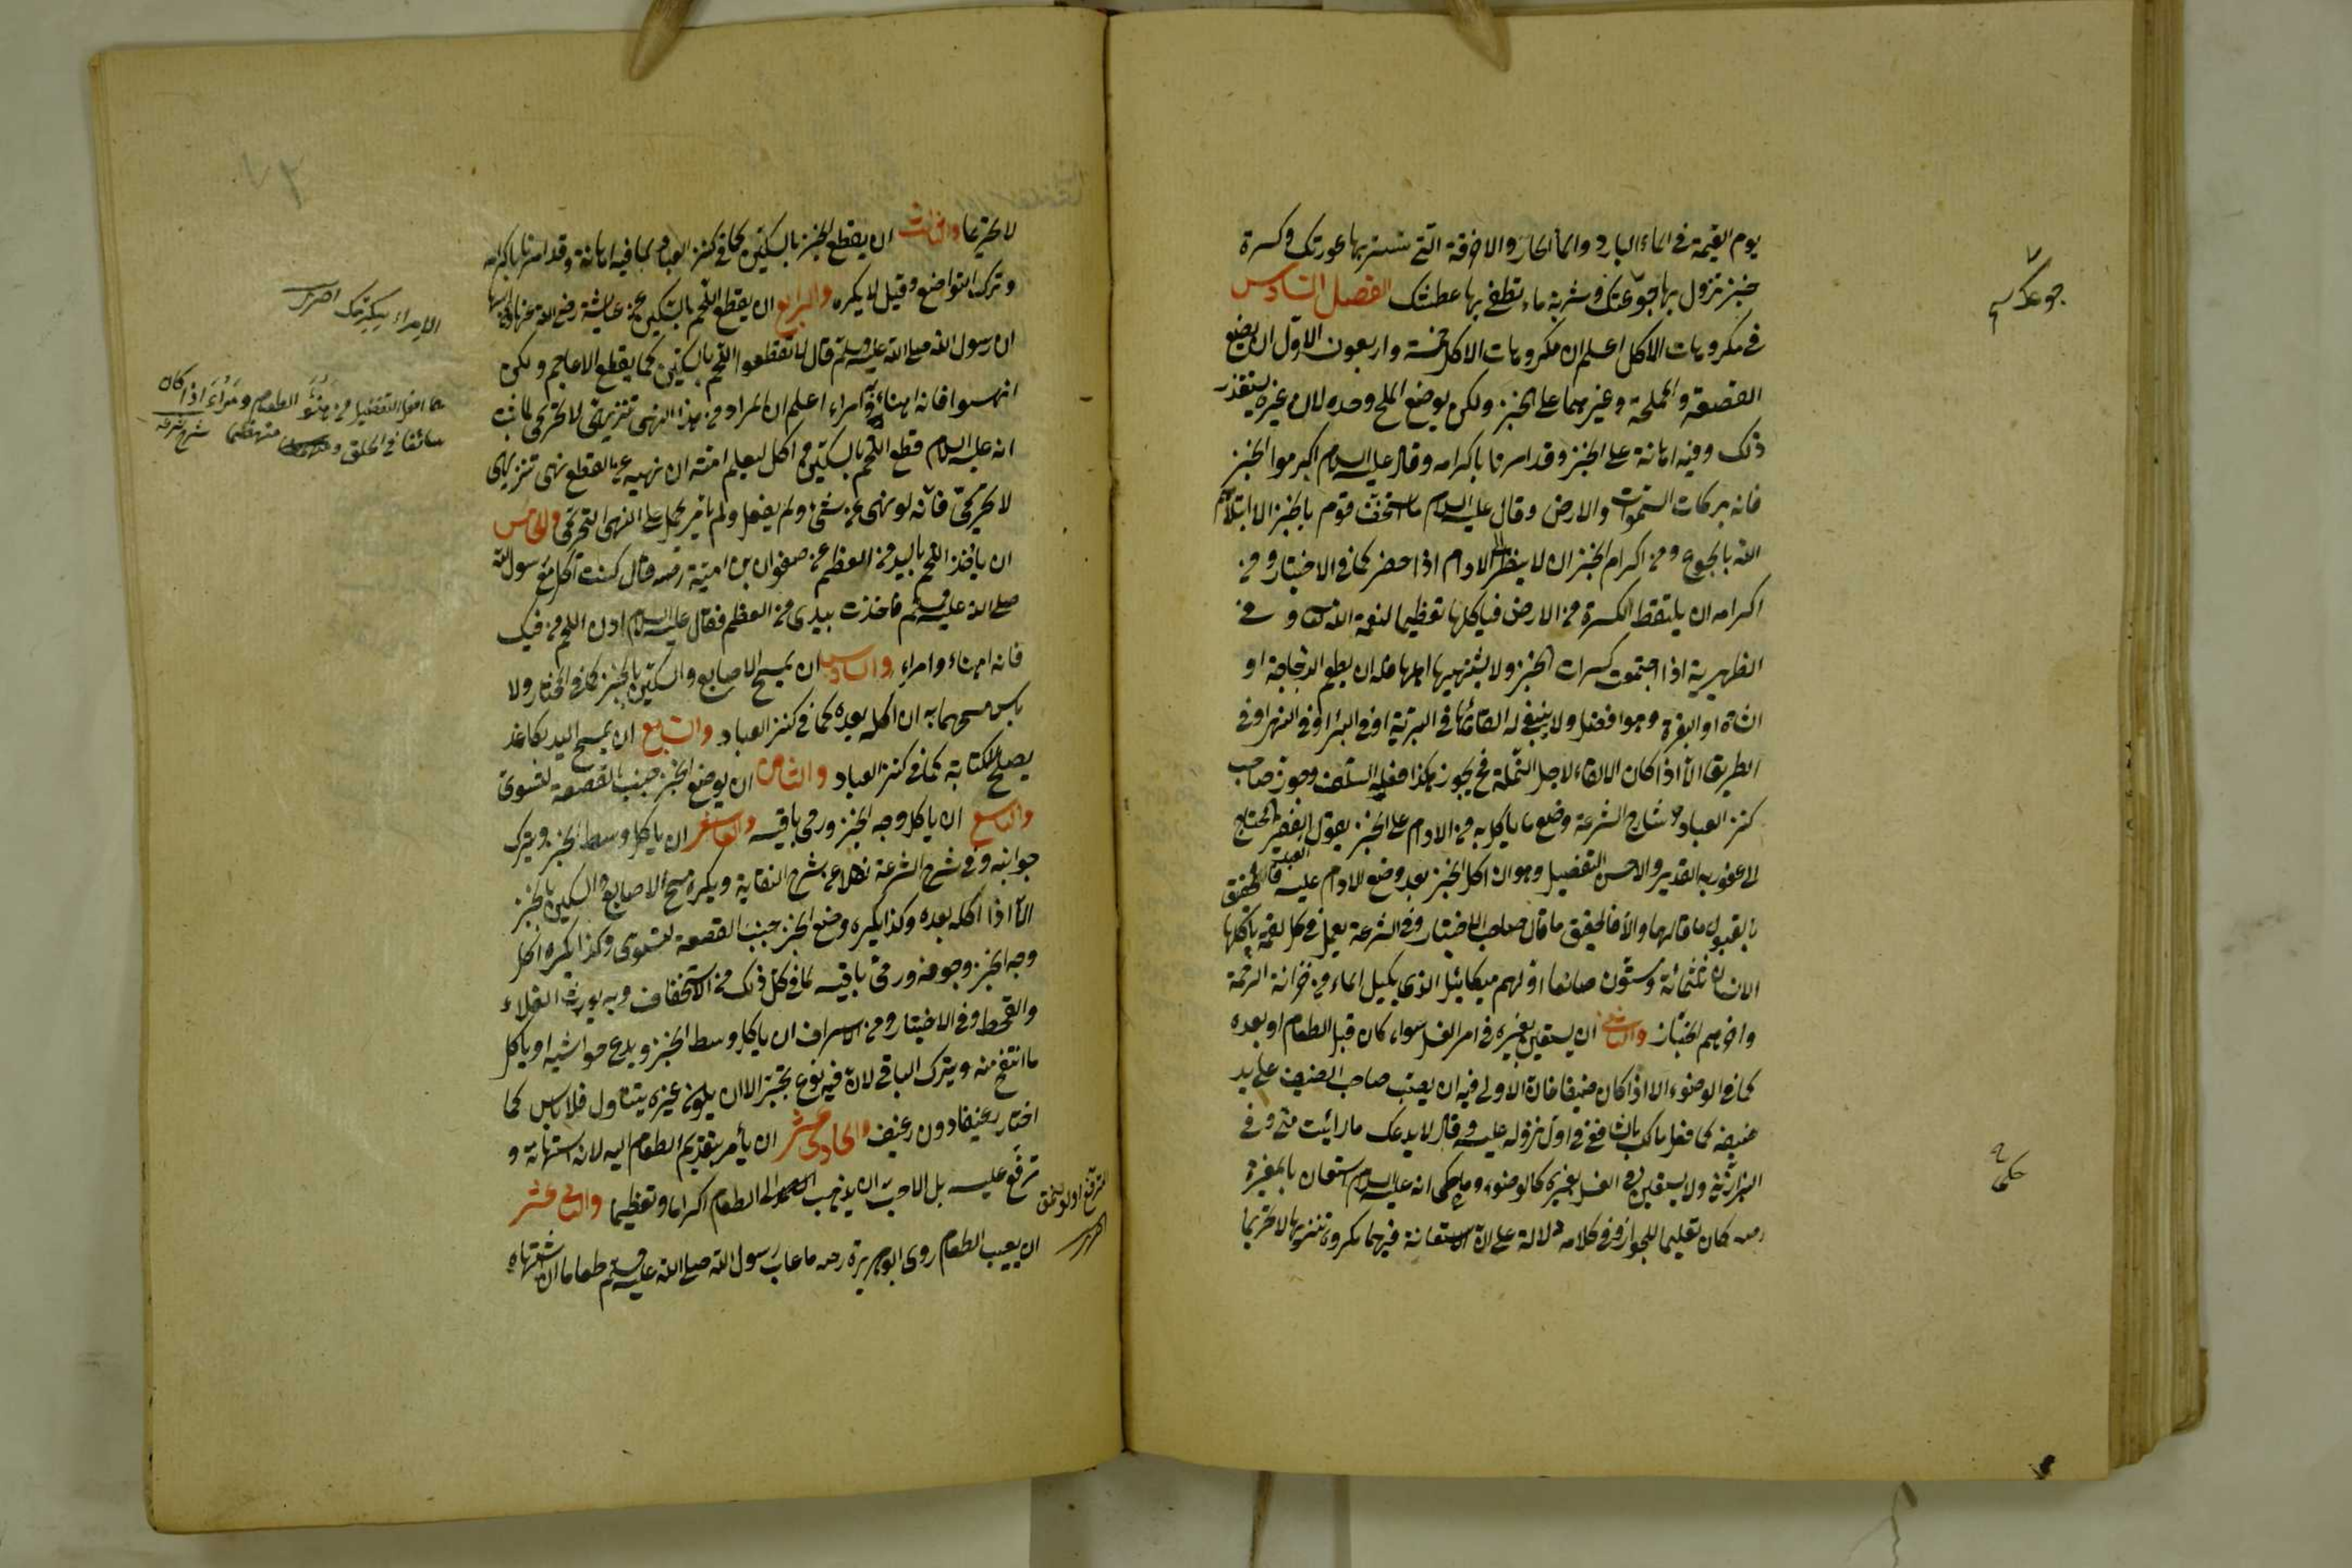 يوم القيمة في الماء البارد والماء الحار والاخرقة التي تستر بها عورتك وكسرة
خبز تزول بها جوعتك وشربة ماء تطفئ بها عطشك الفصل السادس
في مكروهات الاكل اعلم ان مكروهات الاكل خمسة واربعون الاول ان يضع
القصعة والمملحة وغيرهما على الخبز ولكن يوضع الملح وحده لان غيره يتقذر
ذلك وفيه اهانة على الخبز وقد امرنا باكرامه وقال عليه السلام اكرموا الخبز
فانه بركات السموات والارض وقال عليه السلام ما استخف قوم بالخبز الا ابتلاهم
الله بالجوع ومن اكرام الخبز ان لا ينظر الادام اذا حضر كما في الاختيار ومن
اكرامه ان يلتقط الكسرة من الارض فيأكلها تعظيما لنعمة الله تعالى وفي
الظهيرية اذا اجتمعت كسرات الخبز ولا يشتهيها اهلها فله ان يطعم الدجاجة او
الشاة او البقرة وهو افضل ولا ينبغي له القائها في البرية او في البئر او في النهر او في
الطريق الا اذا كان الالقاء لاجل النملة فح يجوز هكذا فعله السلف وجوز صاحب
كنز العباد وشارح الشرعة وضع ما يأكل به من الادام على الخبز يقول الفقير المحتاج
الى عفو ربه القدير والاحسن التفصيل وهو ان اكل الخبز بعد وضع الادام عليه فالحقيق
بالقبول ما قالهما والا فالحقيق ما قال صاحب الاختيار وفي الشرعة يعمل في كل لقمة يأكلها
الانسان ثلثمائة وستون صانعا اولهم ميكائيل الذي يكيل الماء من خزانة الرحمة
واخرهم الخباز والثاني ان يستعين بغيره في امر الغسل سواء كان قبل الطعام او بعده
كما في الوضوء الا اذا كان ضيفا فان الاولى فيه ان يصب صاحب الضيف على يد
ضيفه كما فعل مالك بالشافعي في اول نزوله عليه وقال لا يدعك ما رأيت مني وفي
البزازية ولا يستعين في الغسل بغيره كالوضوء وما حكى انه عليه السلام استعان بالمغيرة
رضه كان تعليما للجواز وفي كلامه دلالة على ان الاستعانة فيهما مكروه تنزيها لا تحريما
جوعك
حكى
لا تحريما والثالث ان يقطع الخبز بالسكين كما في كنز العباد لما فيه اهانة وقد امرنا باكرامه
وترك التواضع وقيل لا يكره والرابع ان يقطع اللحم بالسكين عن عايشة رضي الله عنها
ان رسول الله صلى الله عليه وسلم قال لا تقطعوا اللحم بالسكين كما يقطع الاعاجم ولكن
انهسوا فانه اهناء وامراء اعلم ان المراد من هذا النهي تنزيهي لا تحريمي لما ثبت
انه عليه السلام قطع اللحم بالسكين واكل ليعلم امته ان نهيه عن القطع نهي تنزيهي
لا تحريمي فانه لو نهى عن شيء ولم يفعل ولم يأمر يحمل على النهي التحريمي والخامس
ان يأخذ اللحم باليد من العظم عن صفوان بن امية رضه قال كنت آكل مع رسول الله
صلى الله عليه وسلم فاخذت بيدي من العظم فقال عليه السلام ادن اللحم من فيك
فانه اهناء وامراء والسادس ان يمسح الاصابع والسكين بالخبز كما في المختار ولا
بأس مسحهما به ان اكله بعده كما في كنز العباد والسابع ان يمسح اليد بكاغد
يصلح للكتابة كما في كنز العباد والثامن ان يوضع الخبز جنب القصعة لتستوي
والتاسع ان يأكل وجه الخبز ورمى باقيه والعاشر ان يأكل وسط الخبز ويترك
جوانبه وفي شرح الشرعة نقلا عن شرح النقاية ويكره مسح الاصابع والسكين بالخبز
الا اذا اكله بعده وكذا يكره وضع الخبز جنب القصعة لتستوي وكذا يكره اكل
وجه الخبز وجوفه ورمى باقيه لما في كل ذلك من الاستخفاف وبه يورث الغلاء
والقحط وفي الاختيار ومن الاسراف ان يأكل وسط الخبز ويدع حواشيه او يأكل
ما انتفخ منه ويترك الباقي لان فيه نوع تجبر الا ان يكون غيره يتناول فلا بأس كما
اختار رغيفا دون رغيف والحادي عشر ان يأمر بتقديم الطعام اليه لانه استهانة و
ترفع عليه بل الاحب ان يذهب الى الطعام اكراما وتعظيما والثاني عشر
ان يعيب الطعام روى ابو هريرة رضه ما عاب رسول الله صلى الله عليه وسلم طعاما ان اشتهاه
الامراء
هما افعل التفضيل من هنؤ الطعام ومرأ اذا كان
سائغا في الحلق منهضما شرح شرعه